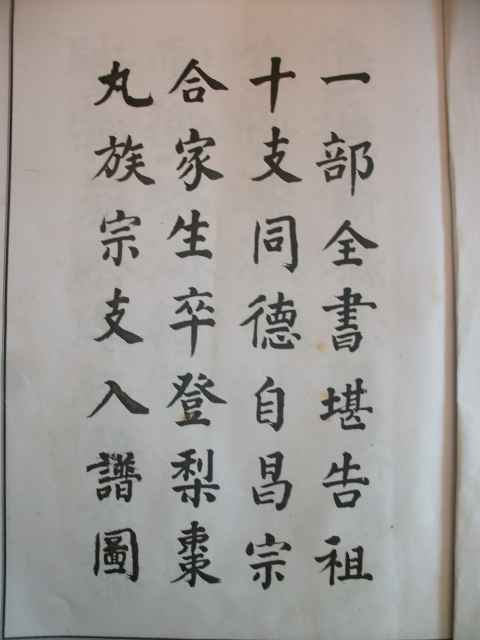 一部全書堪告祖
十支同德自昌宗
合家生卒登梨棗
丸族宗支入譜圖